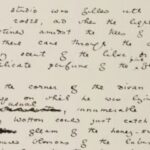 studio was filled with
roses, and when the light
amidst the trees of
there came through the
scent of the lilac, or
delicate perfume of the
the corner of the divan
on which he was lying
usual
innumerable
Wotton could just catch
gleam of the honey-
blossoms of the